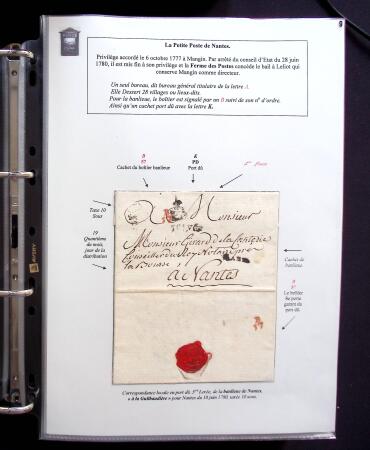 9
La Petite Poste de Nantes.
Privilège accordé le 6 octobre 1777 à Mangin. Par arrêté du conseil d'Etat du 28 juin
1780, il est mis fin à son privilège et la Ferme des Postes concède le bail à Leliot qui
conserve Mangin comme directeur.
Un seul bureau, dit bureau général titulaire de la lettre A.
Elle Dessert 28 villages ou lieux-dits.
Pour la banlieue, le boîtier est signalé par un B suivi de son n° d'ordre.
Ainsi qu'un cachet port dû avec la lettre K.
B
57
Cachet du boîtier banlieue
K
PD
Port dû
Taxe 10
Sous
19
Quantième
du mois,
jour de la
distribution
A Monsieur
Monsieur Girard de la
Conseiller du Roy Notaire
la Bourse
a Nantes
Cachet de
banlieue.
B
57
Le boîtier
Se porte
garant du
port dû.
AVERY
Correspondance locale en port dû. 5ème Levée, de la banlieue de Nantes.
« à la Guilbaudière » pour Nantes du 18 juin 1780 taxée 10 sous.